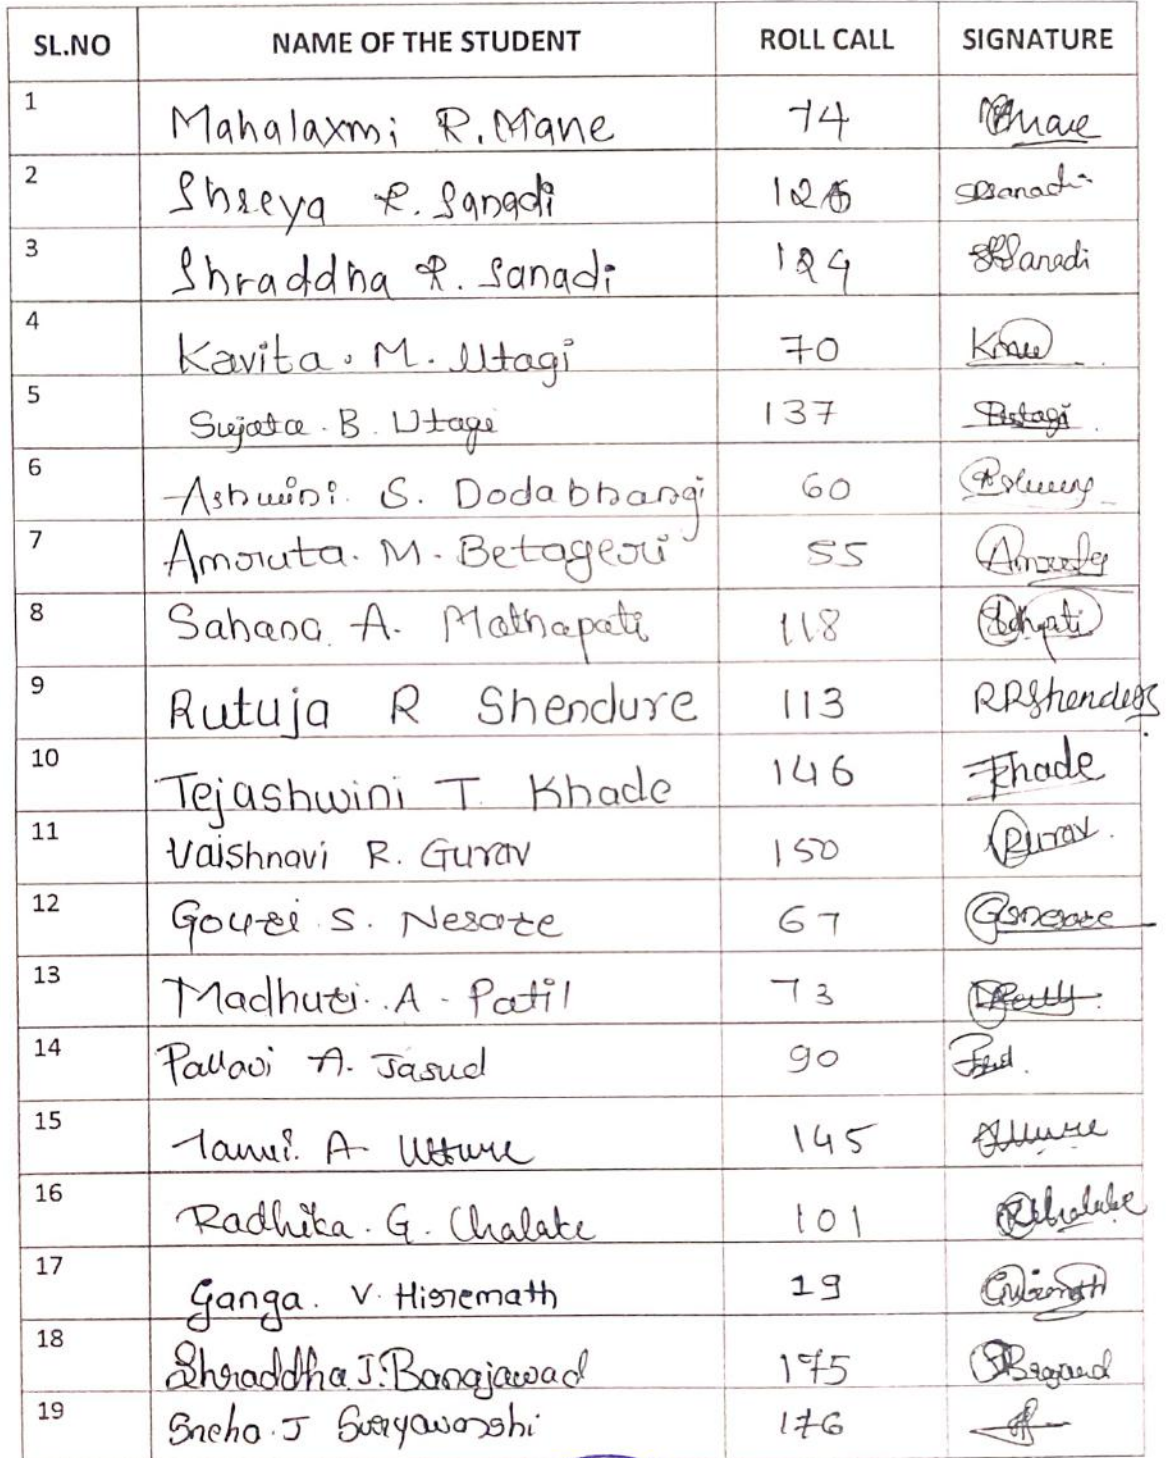 SL.NO NAME OF THE STUDENT ROLL CALL SIGNATURE
1 Mahalaxmi R. Mane 74 Mane
2 Shreya R. Sanadi 126 SRSanadi
3 Shraddha R. Sanadi 129 SRSanadi
4 Kavita. M. Utagi 70
5 Sujata. B. Utagi 137 Butagi
6 Ashwini. S. Dodabhangi 60
7 Amruta. M. Betageri 55 Amruta
8 Sahana A. Mathapati 118
9 Rutuja R Shendure 113 RRShendure
10 Tejashwini T. Khade 146 Khade
11 Vaishnavi R. Gurav 150 Gurav.
12 Gouri S. Nesare 67 GSnesare
13 Madhuri. A. Patil 73
14 Pallavi A. Jasud 90
15 Tanvi. A Utture 145
16 Radhika. G. Chalake 101 RChalake
17 Ganga. V. Hiremath 19
18 Shraddha J. Banajawad 175
19 Sneha. J Suryawanshi 176